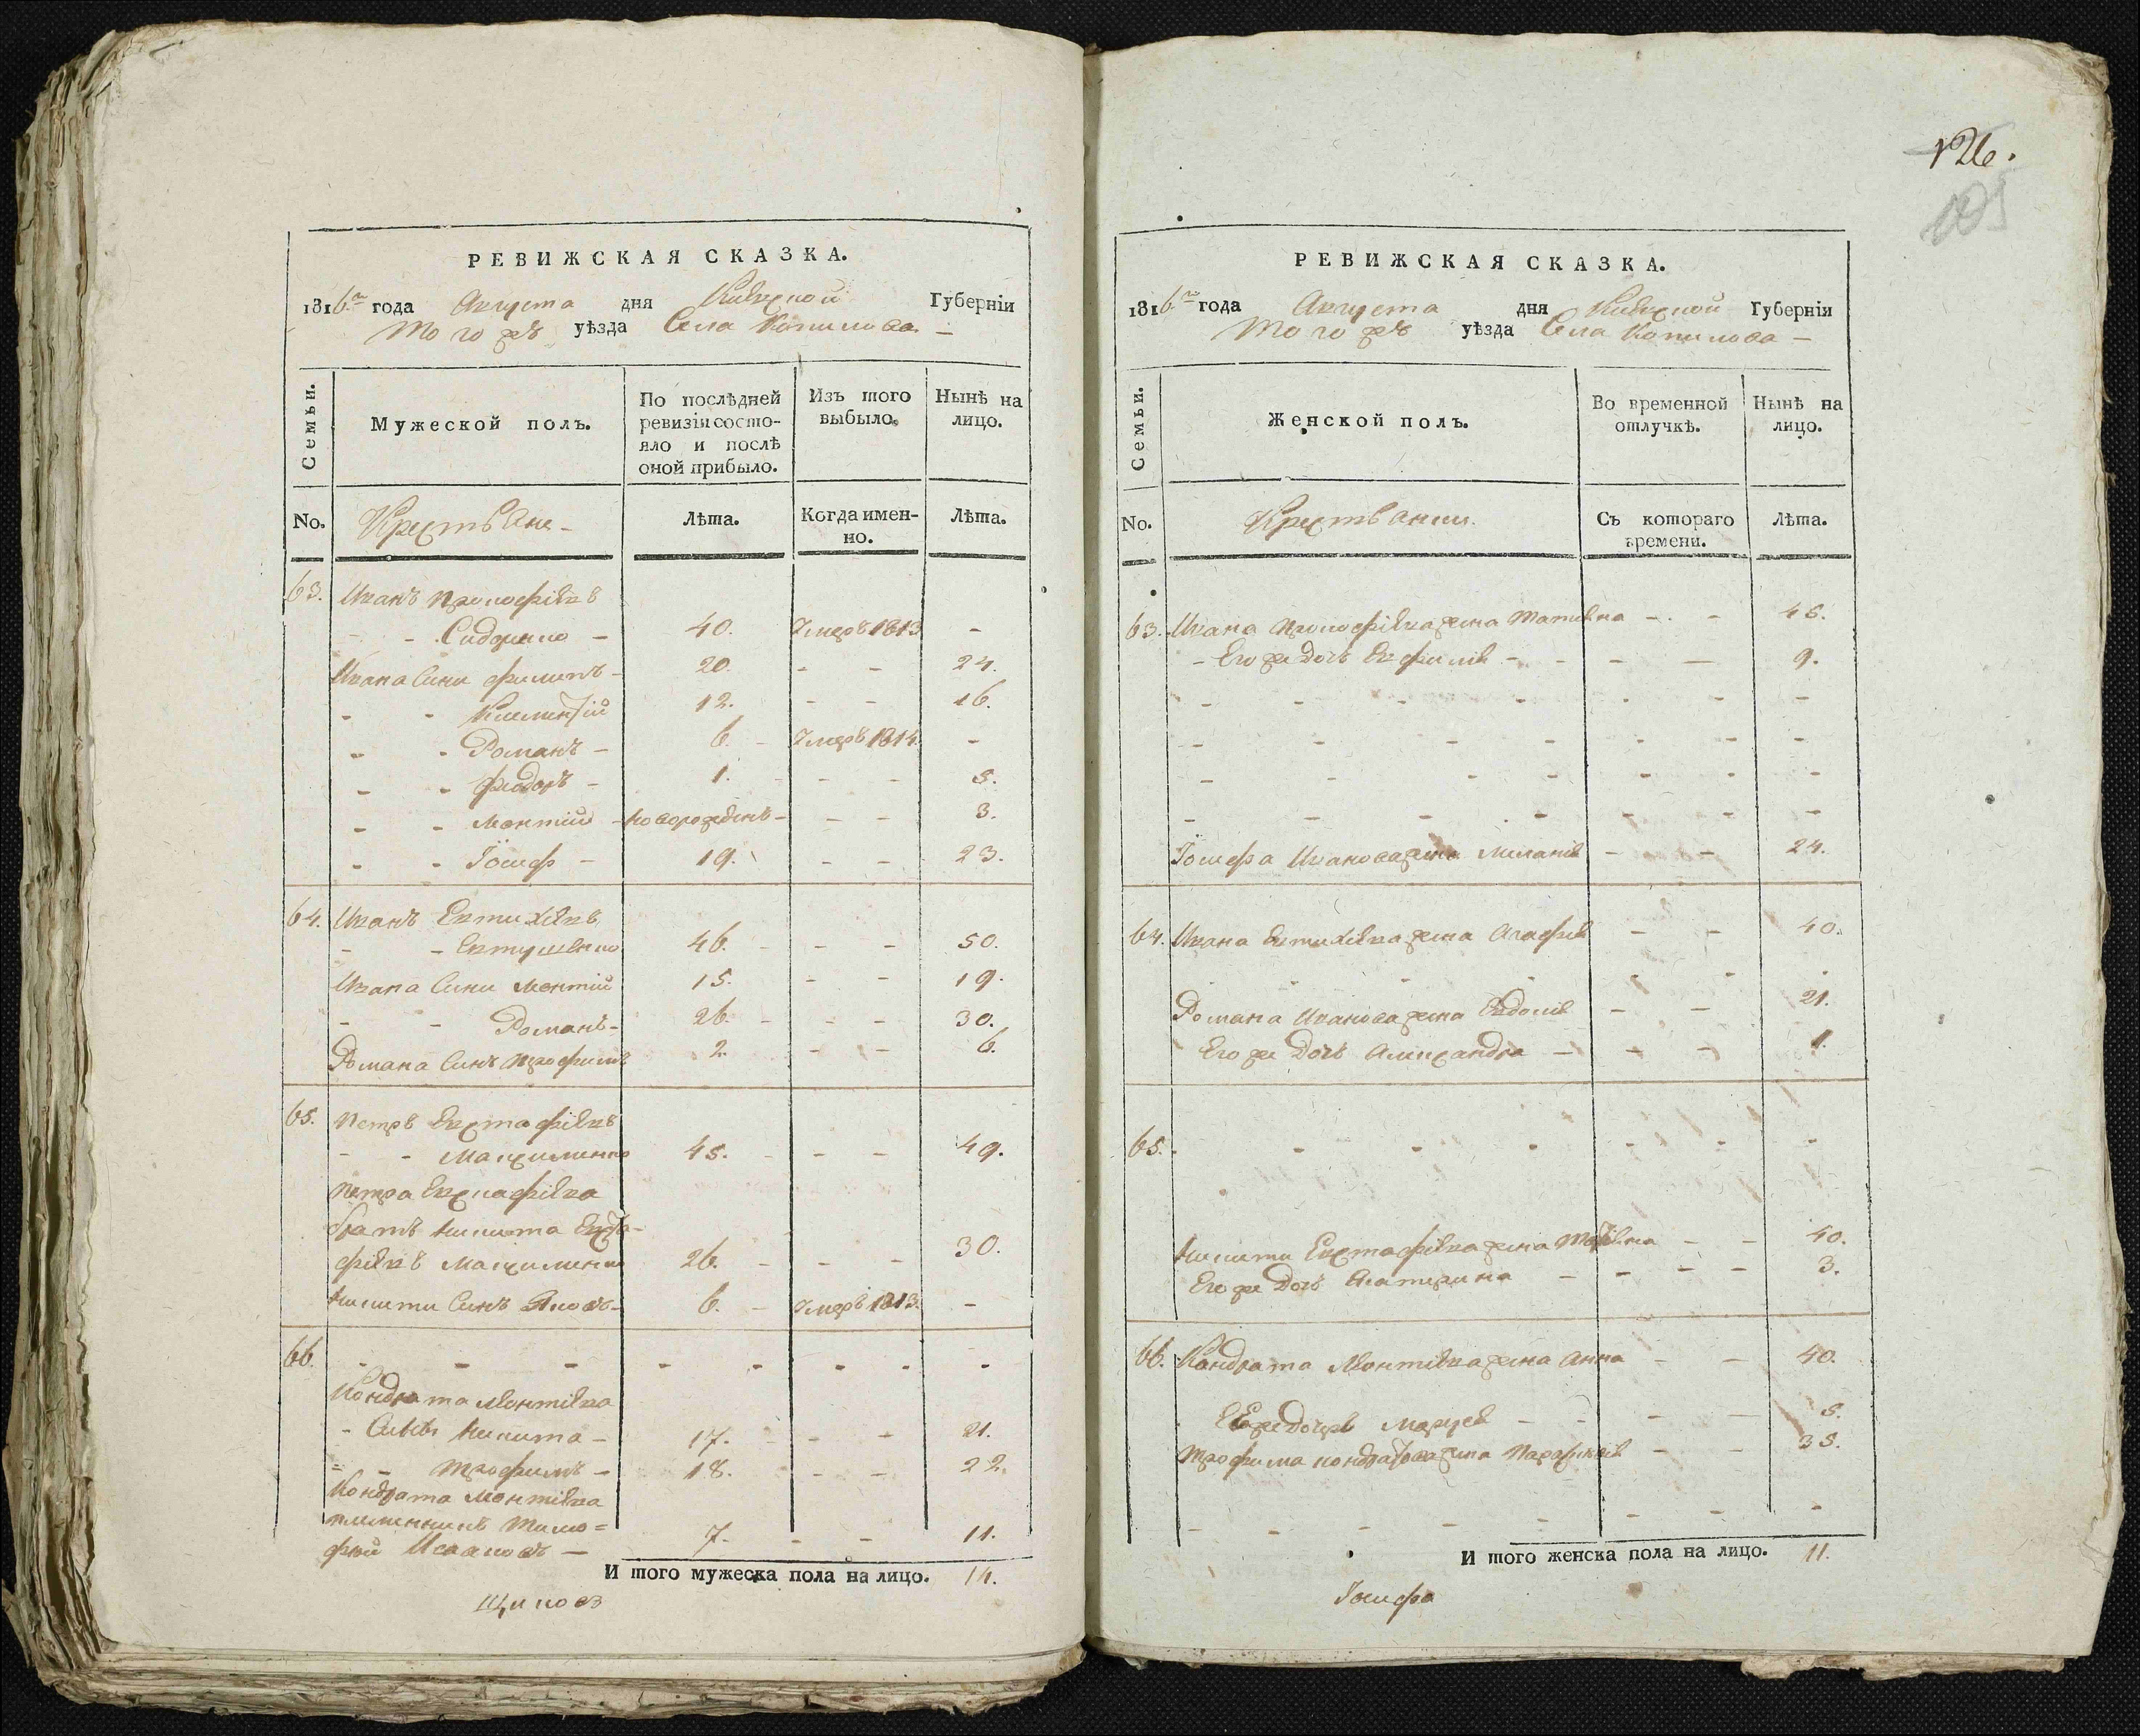 РЕВИЖСКАЯ СКАЗКА.
1816го года Августа дня Кіевской Губерніи
Того жъ уѣзда Села Копилова —
Семьи.
Мужеской полъ.
По послѣдней ревизіи состо-
яло и послѣ
оной прибыло.
Изъ того
выбыло.
Нынѣ на
лицо.
No.
Крестьяне —
Лѣта.
Когда имен-
но.
Лѣта.
63. Иванъ Прокофіевъ
Сидоренко — 40. Умеръ 1813 —
Ивана Сини Филипъ — 20. — — 24.
Климентій 12. — — 16.
Романъ — 6. — Умеръ 1814. —
Феодоръ — 1. — — 5.
Леонтій — новорожденъ — — — 3.
Іосиф — 19. — — 23.
64. Иванъ Евтихіевъ
Евтушенко 46. — — 50.
Ивана Сини Леонтій 15. — 19.
Романъ — 26. — — 30.
Романа Синъ Трофимъ 2. — — 6.
65. Петръ Евстафіевъ
Максименко 45. — — 49.
Петра Евстафіева
братъ Никита Евста-
фіевъ Максименко 26. — — 30.
Никити Синъ Яковъ — 6. — Умеръ 1813. —
66. — — — — — — — —
Кондрата Леонтіева
Никита — 17. — — 21.
Трофимъ — 18. — — 22.
Кондрата Леонтіева
племенникъ Тимо=
фѣй Исааковъ — 7. — — 11.
И того мужеска пола на лицо. 14.
126.
105
РЕВИЖСКАЯ СКАЗКА.
1816го года Августа дня Кіевской Губерніи
Того жъ уѣзда Села Копилова —
Семьи.
Женской полъ.
Во временной
отлучкѣ.
Нынѣ на
лицо.
No.
Крестьянки.
Съ котораго
времени.
Лѣта.
63. Ивана Прокофіева жена — — 45.
Его же дочь Евфимія — — — — 9.
Іосифа Иванова жена Меланія — — 24.
64. Ивана Евтихіева жена Агафія — — 40.
Романа Иванова жена Евдокія — — 21.
Его же Дочь Александра — — — 1.
65.
Никити Евстафіева жена — — 40.
Его же Дочь Екатерина — — — — 3.
66. Кондрата Леонтіева жена Анна — — 40.
5.
Трофима Кондратова жена — — 35.
И того женска пола на лицо. 11.
Іосифа